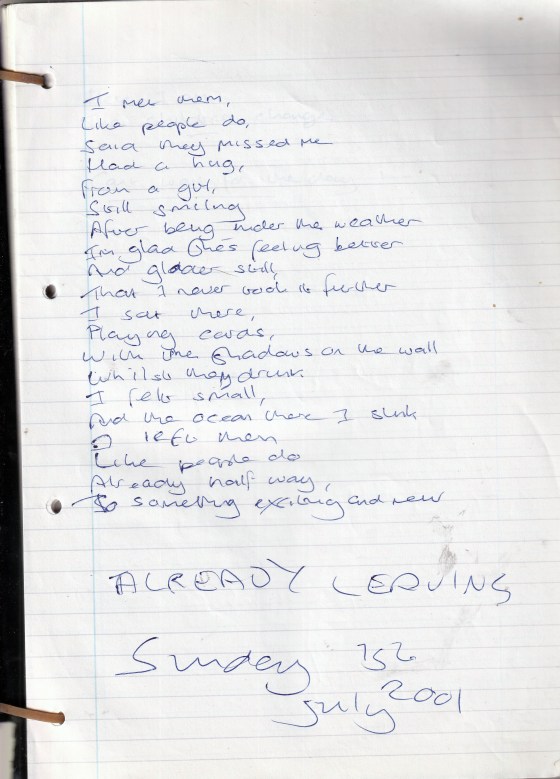 I met them,
Like people do,
Said they missed me
Had a hug,
From a girl,
Still smiling
After being under the weather
I'm glad she's feeling better
And gladder still,
That I never took it further
I sat there,
Playing cards,
With the shadows on the wall
Whilst they drunk.
I felt small,
And the ocean there I sunk
I left them
Like people do
Already half way,
To something exciting and new
ALREADY LEAVING
Sunday 1st
July 2001